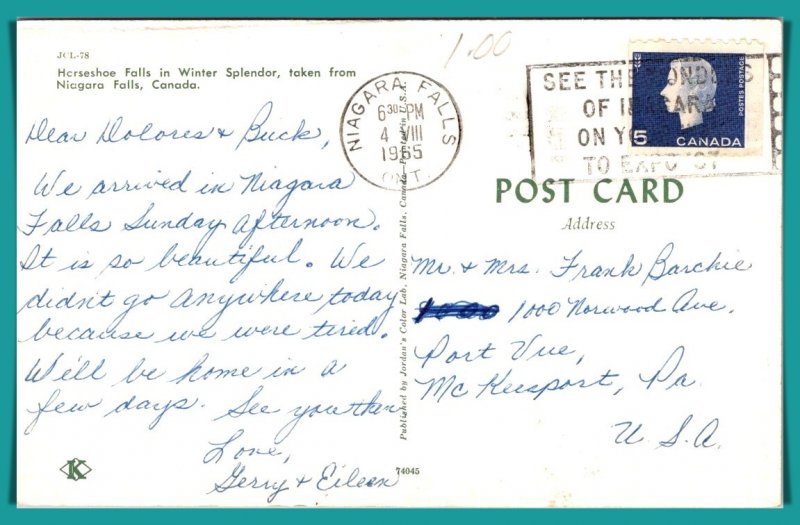 JCL-78
Horseshoe Falls in Winter Splendor, taken from
Niagara Falls, Canada.
1.00
Dear Dolores & Buck,
We arrived in Niagara
Falls Sunday afternoon.
It is so beautiful. We
didn't go anywhere today
because we were tired.
We'll be home in a
few days. See you then
Love,
Gerry & Eileen
K
NIAGARA FALLS
6 30 PM
4 VIII
1965
ONT.
Published by Jordan's Color Lab, Niagara Falls, Canada—Printed in U.S.A.
74045
SEE THE WONDERS
OF NIAGARA
ON YO
TO EXPO 67
5
CANADA
POSTES POSTAGE
POST CARD
Address
Mr. & Mrs. Frank Barchie
1000 Norwood Ave.
Port Vue,
McKeesport, Pa.
U.S.A.